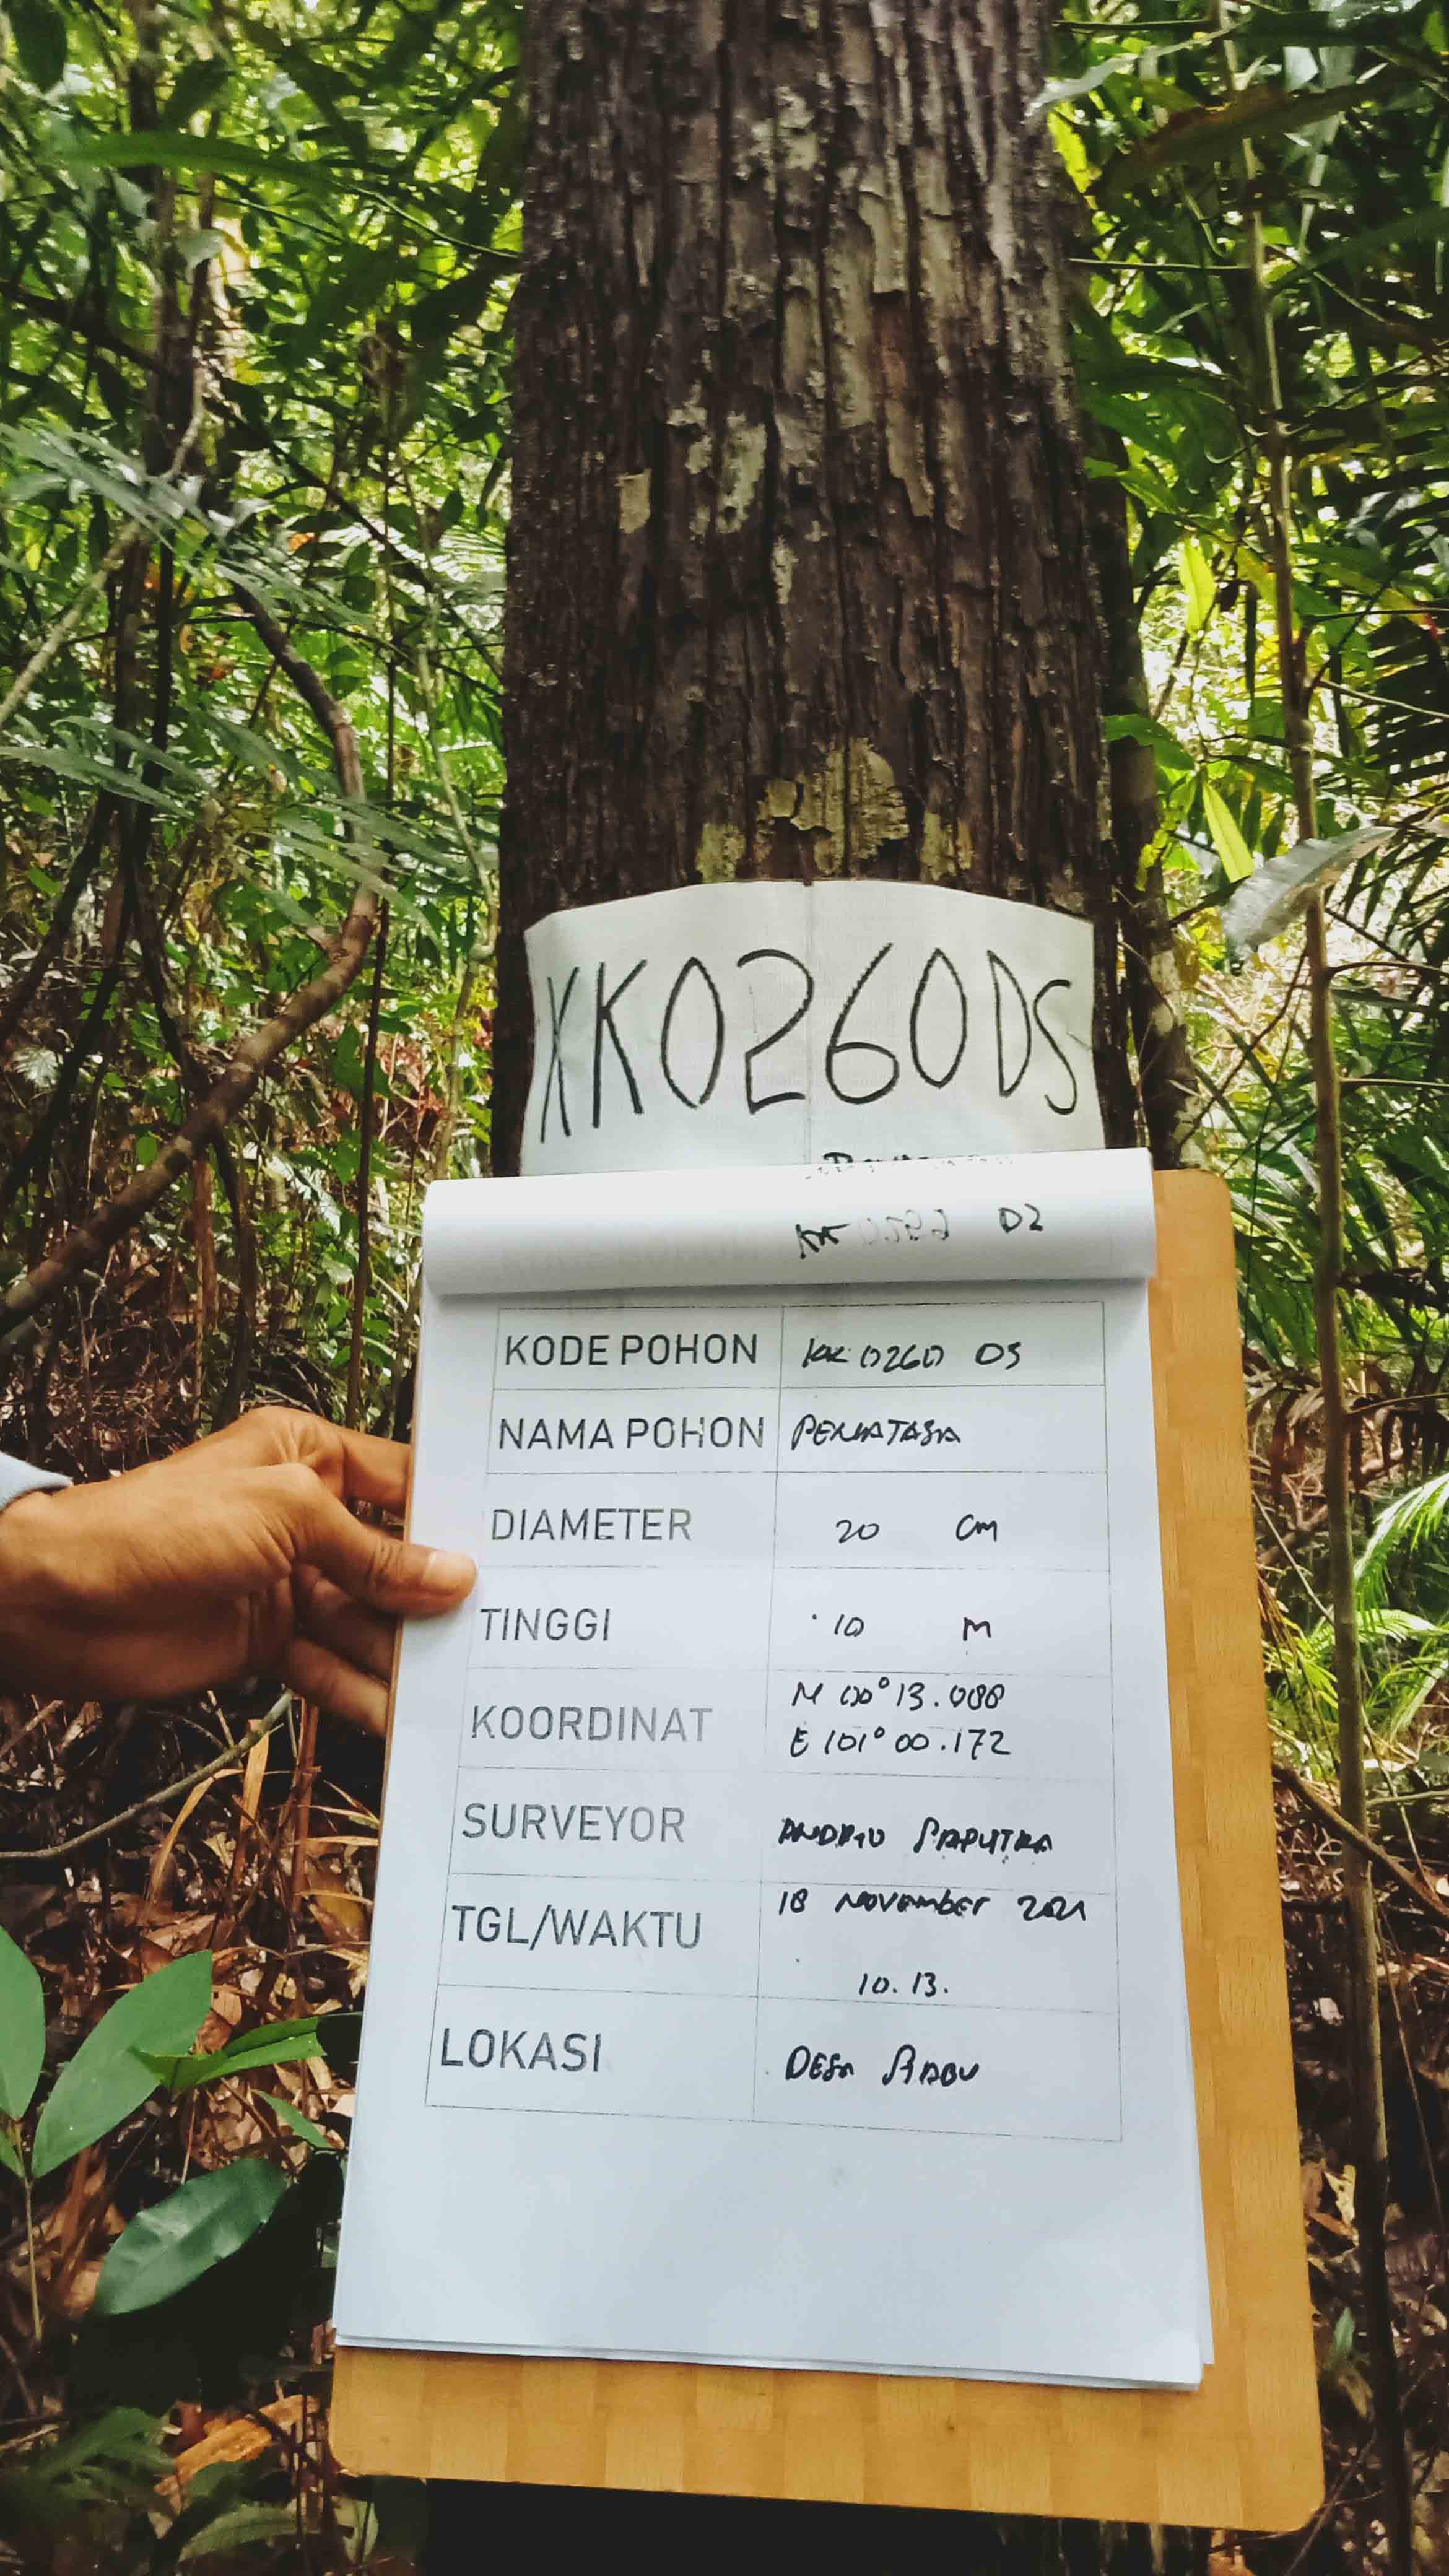 KK0260DS
D2
KODE POHON KK 0260 DS
NAMA POHON
DIAMETER 20 Cm
TINGGI 10 M
KOORDINAT N 00° 13.088
E 101° 00.172
SURVEYOR SAPUTRA
TGL/WAKTU 18 November 2021
10.13.
LOKASI DESA